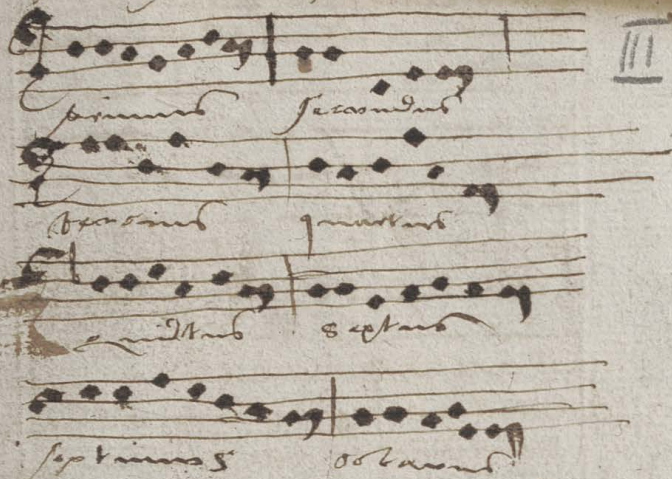 III
primus secundus
tertius quartus
quintus sextus
septimus octavus